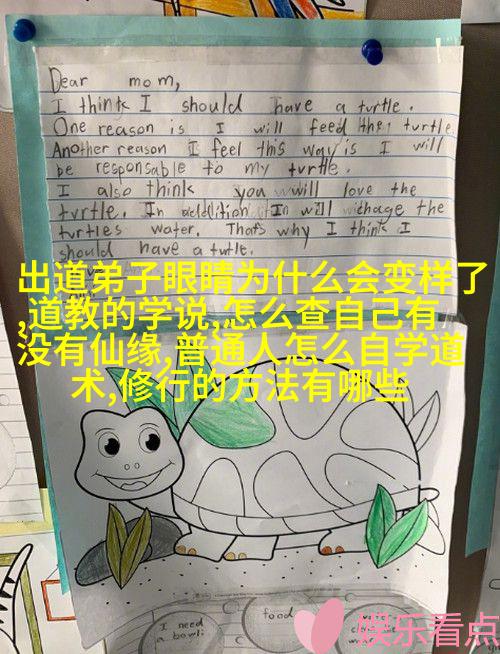 Dear mom,
I think I should have a turtle.
One reason is I will feed the turtle.
Another reason I feel this way is I will
be responsable to my turtle.
I also think you will love the
turtle. In addition I will chage the
turtles water. That's why I think I
should have a turtle.
出道弟子眼睛为什么会变样了
,道教的学说,怎么查自己有
没有仙缘,普通人怎么自学道
术,修行的方法有哪些
I need
a bowl
food
娱乐看点